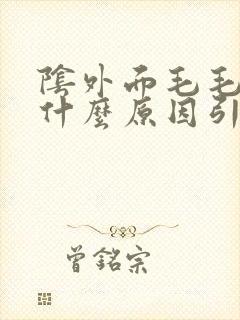 陰外而毛毛
什麼原因引
曾銘宗